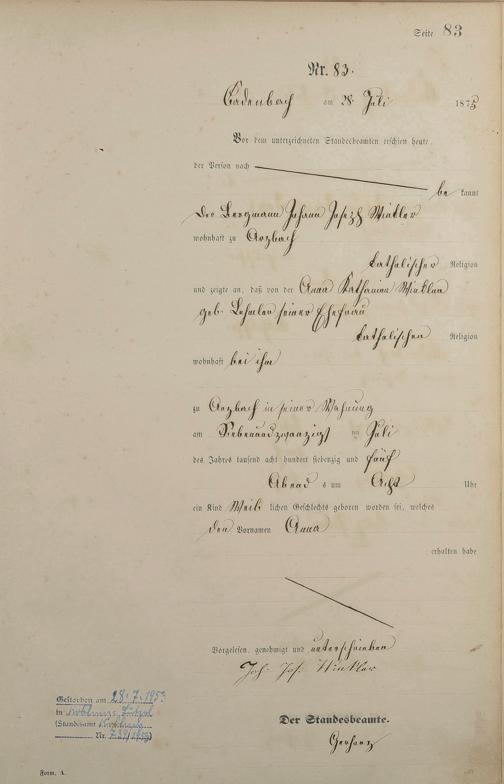 Seite 83
Nr. 83.
Cadenbach am 28. Juli 1875
Vor dem unterzeichneten Standesbeamten erschien heute,
der Person nach
be kannt
der Bergmann Johann Joseph Winkler
wohnhaft zu Arzbach
katholischer Religion
und zeigte an, daß von der Anna Katharina Winkler
geb. Lehmler seiner Ehefrau
katholischer Religion
wohnhaft bei ihm
zu Arzbach in seiner Wohnung
am Siebenundzwanzigst en Juli
des Jahres tausend acht hundert siebenzig und fünf
Abend s um Acht Uhr
ein Kind Weib lichen Geschlechts geboren worden sei, welches
den Vornamen Anna
erhalten habe
Vorgelesen, genehmigt und unterschrieben
Joh. Jos. Winkler
Gestorben am 28.7.1953
in
(Standesamt
Nr.
Der Standesbeamte.
Form. A.